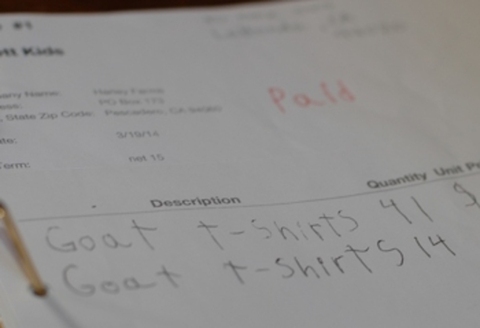 #1
tt Kids
any Name: Harley Farms
ess: PO Box 173
, State Zip Code: Pescadero, CA 94060
Paid
te: 3/19/14
Term: net 15
Description Quantity Unit Pr
Goat t-shirts 41 9
Goat t-shirts 14